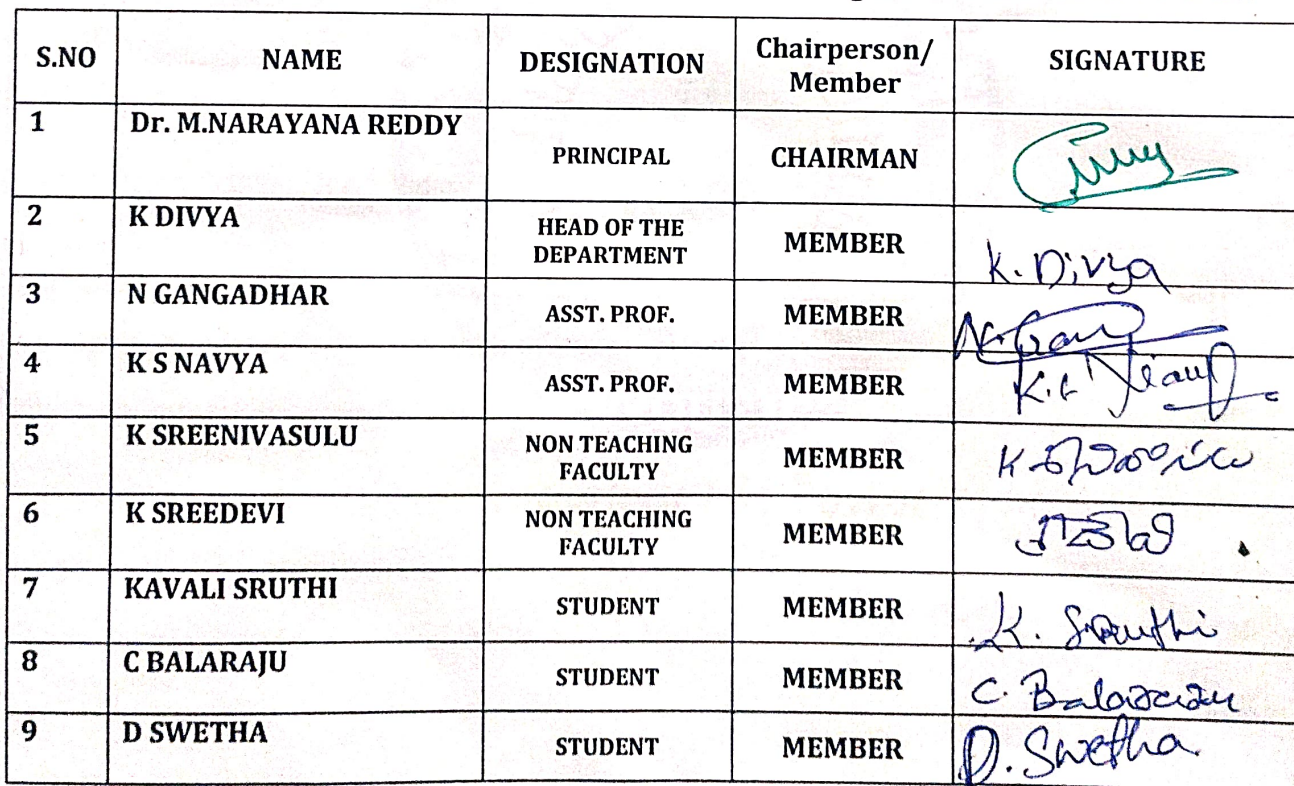 S.NO NAME DESIGNATION Chairperson/ Member SIGNATURE
1 Dr. M.NARAYANA REDDY PRINCIPAL CHAIRMAN
2 K DIVYA HEAD OF THE DEPARTMENT MEMBER K. Divya
3 N GANGADHAR ASST. PROF. MEMBER
4 K S NAVYA ASST. PROF. MEMBER
5 K SREENIVASULU NON TEACHING FACULTY MEMBER
6 K SREEDEVI NON TEACHING FACULTY MEMBER
7 KAVALI SRUTHI STUDENT MEMBER K. Sruthi
8 C BALARAJU STUDENT MEMBER C. Balaraju
9 D SWETHA STUDENT MEMBER D. Swetha